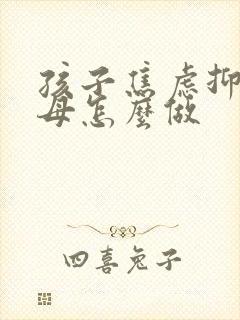 孩子焦虑抑
母怎麼做
四喜兔子